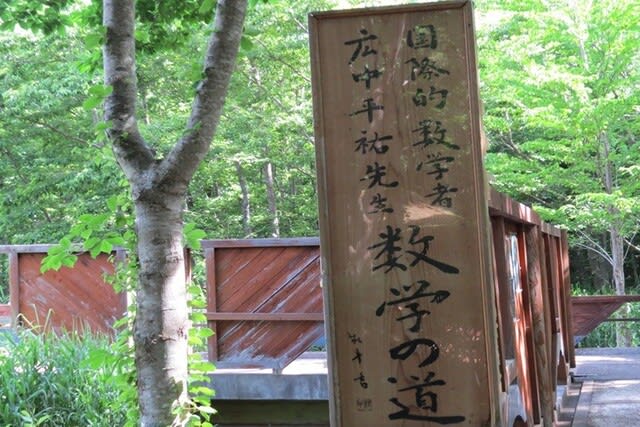 国際的数学者
広中平祐先生
数学の道